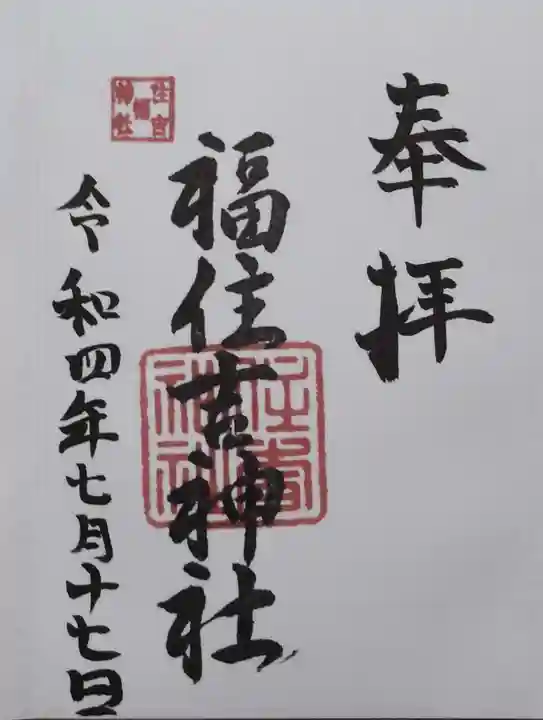 奉拝
福住吉神社
住吉神社
福
住吉神社
令和四年七月十七日